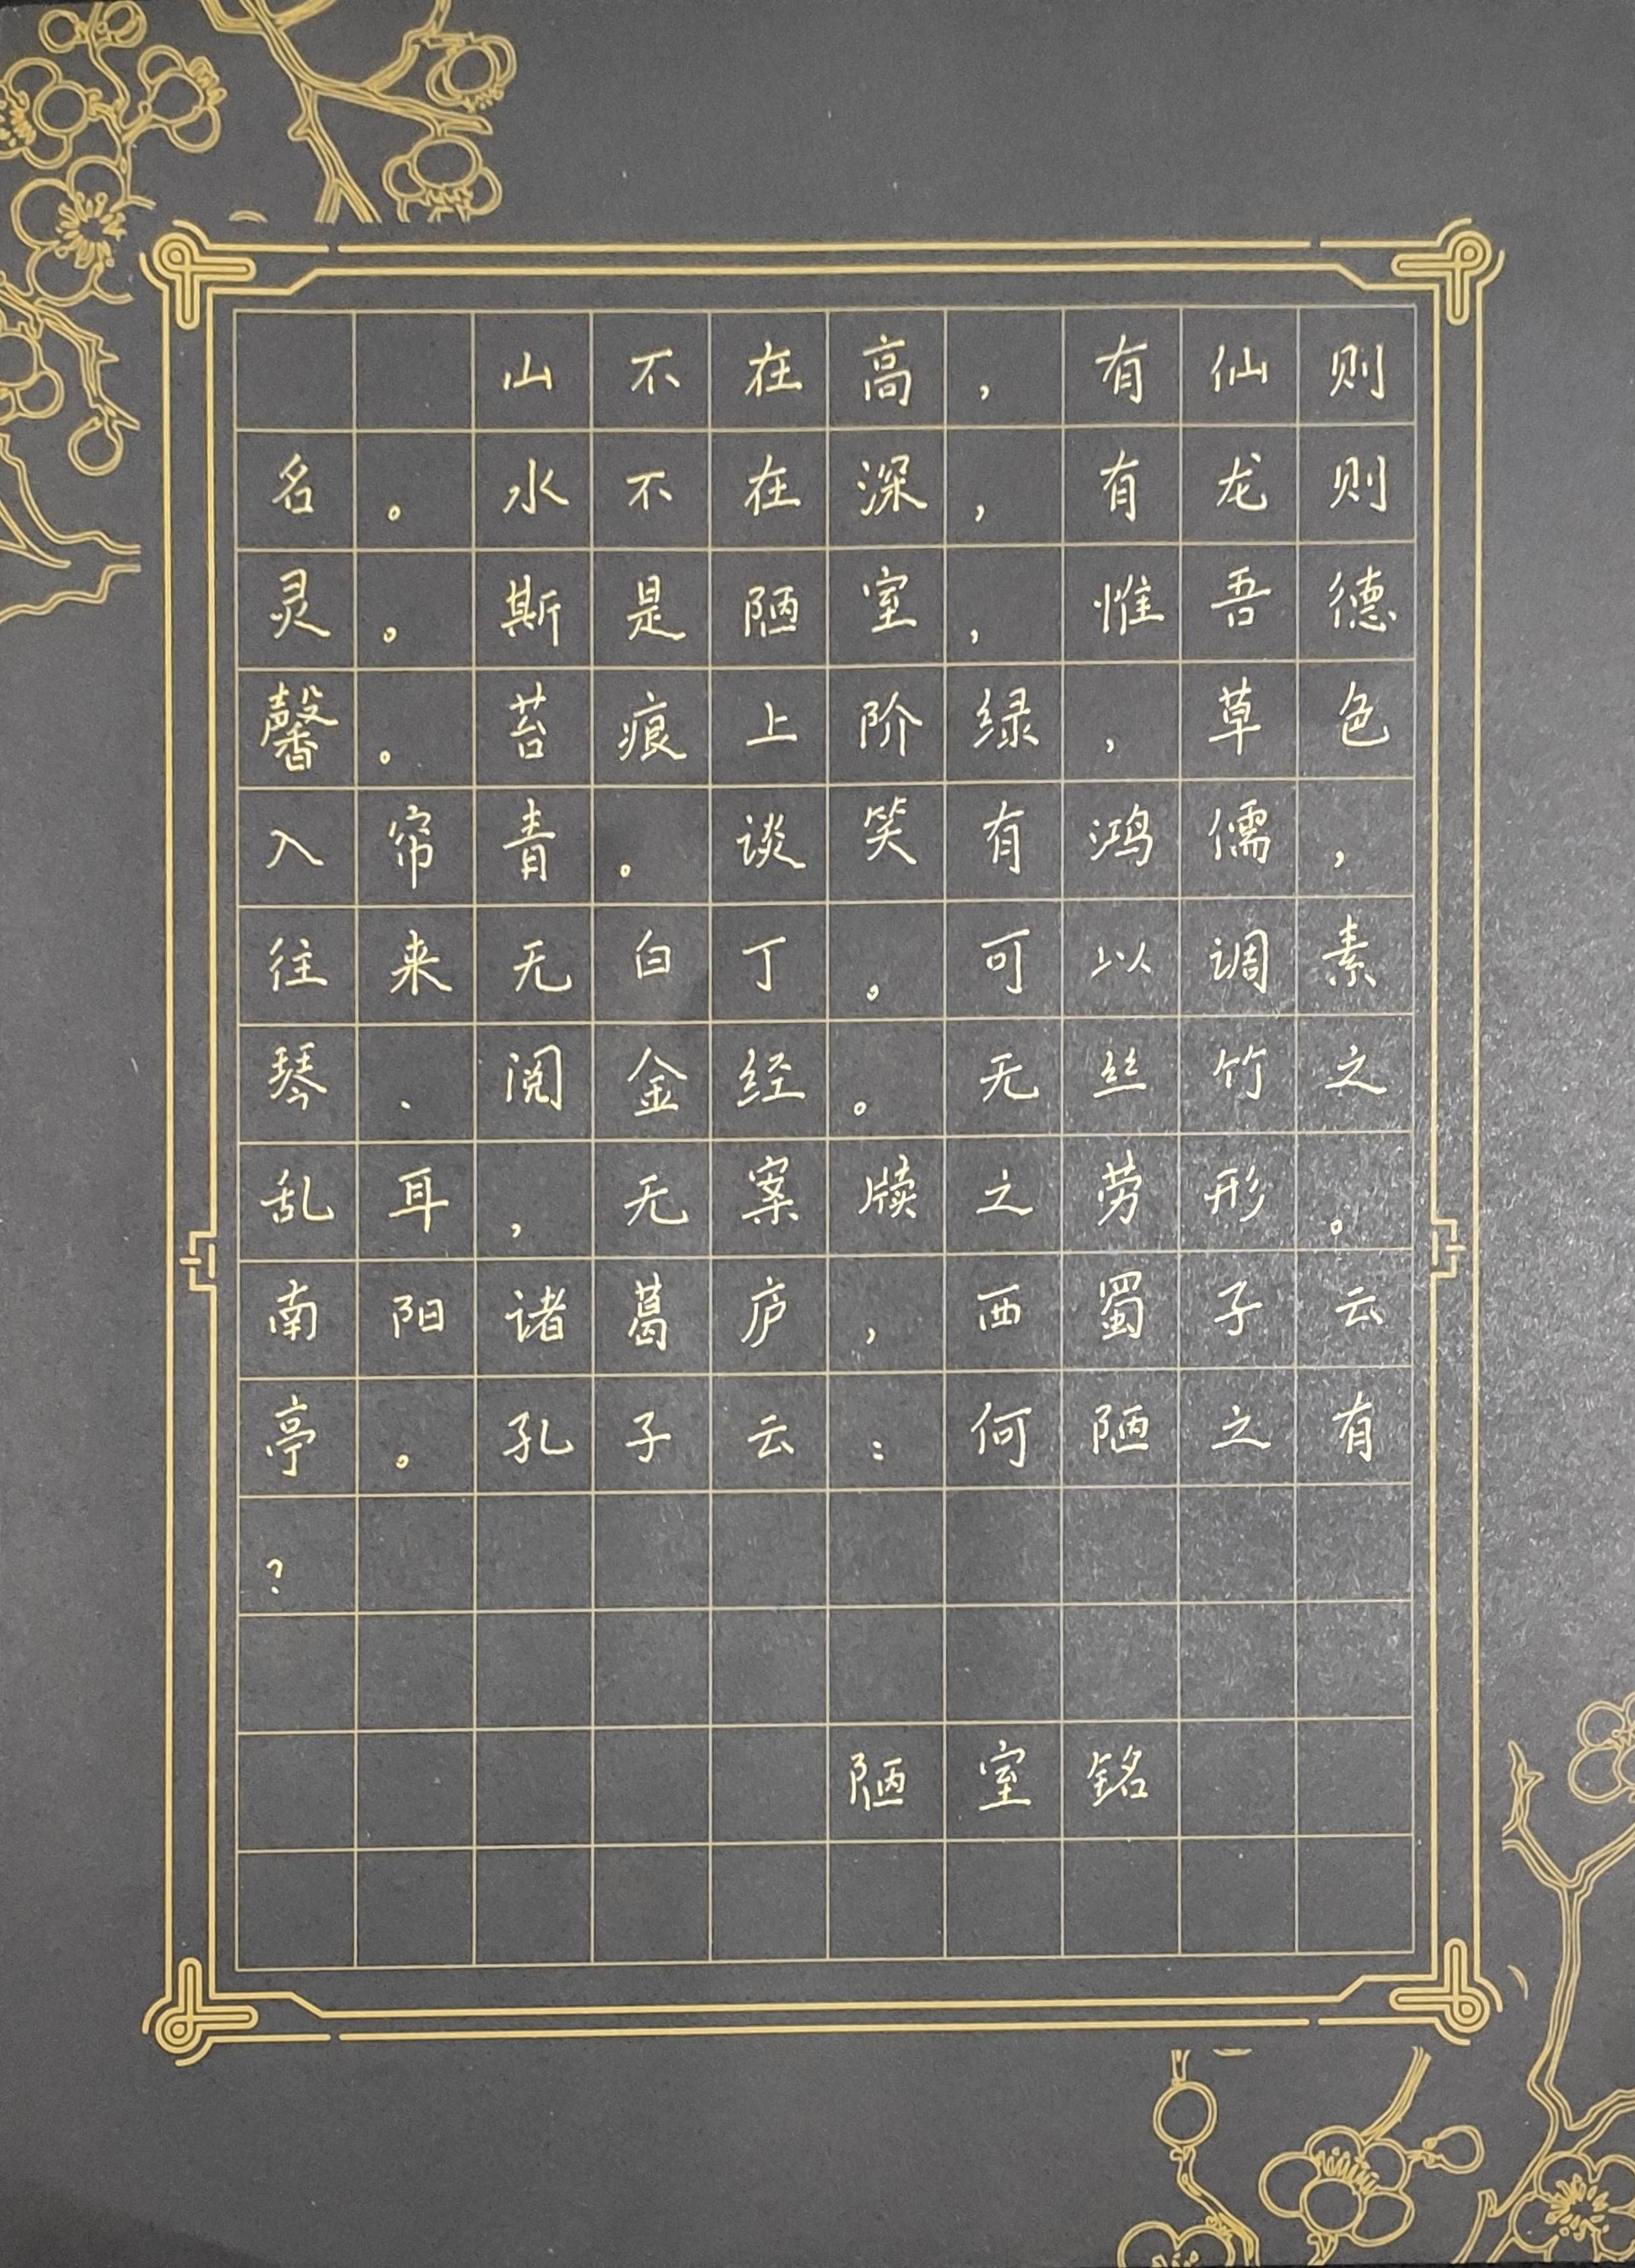 山不在高，有仙则
名。水不在深，有龙则
灵。斯是陋室，惟吾德
馨。苔痕上阶绿，草色
入帘青。谈笑有鸿儒，
往来无白丁。可以调素
琴、阅金经。无丝竹之
乱耳，无案牍之劳形。
南阳诸葛庐，西蜀子云
亭。孔子云：何陋之有
？
陋室銘